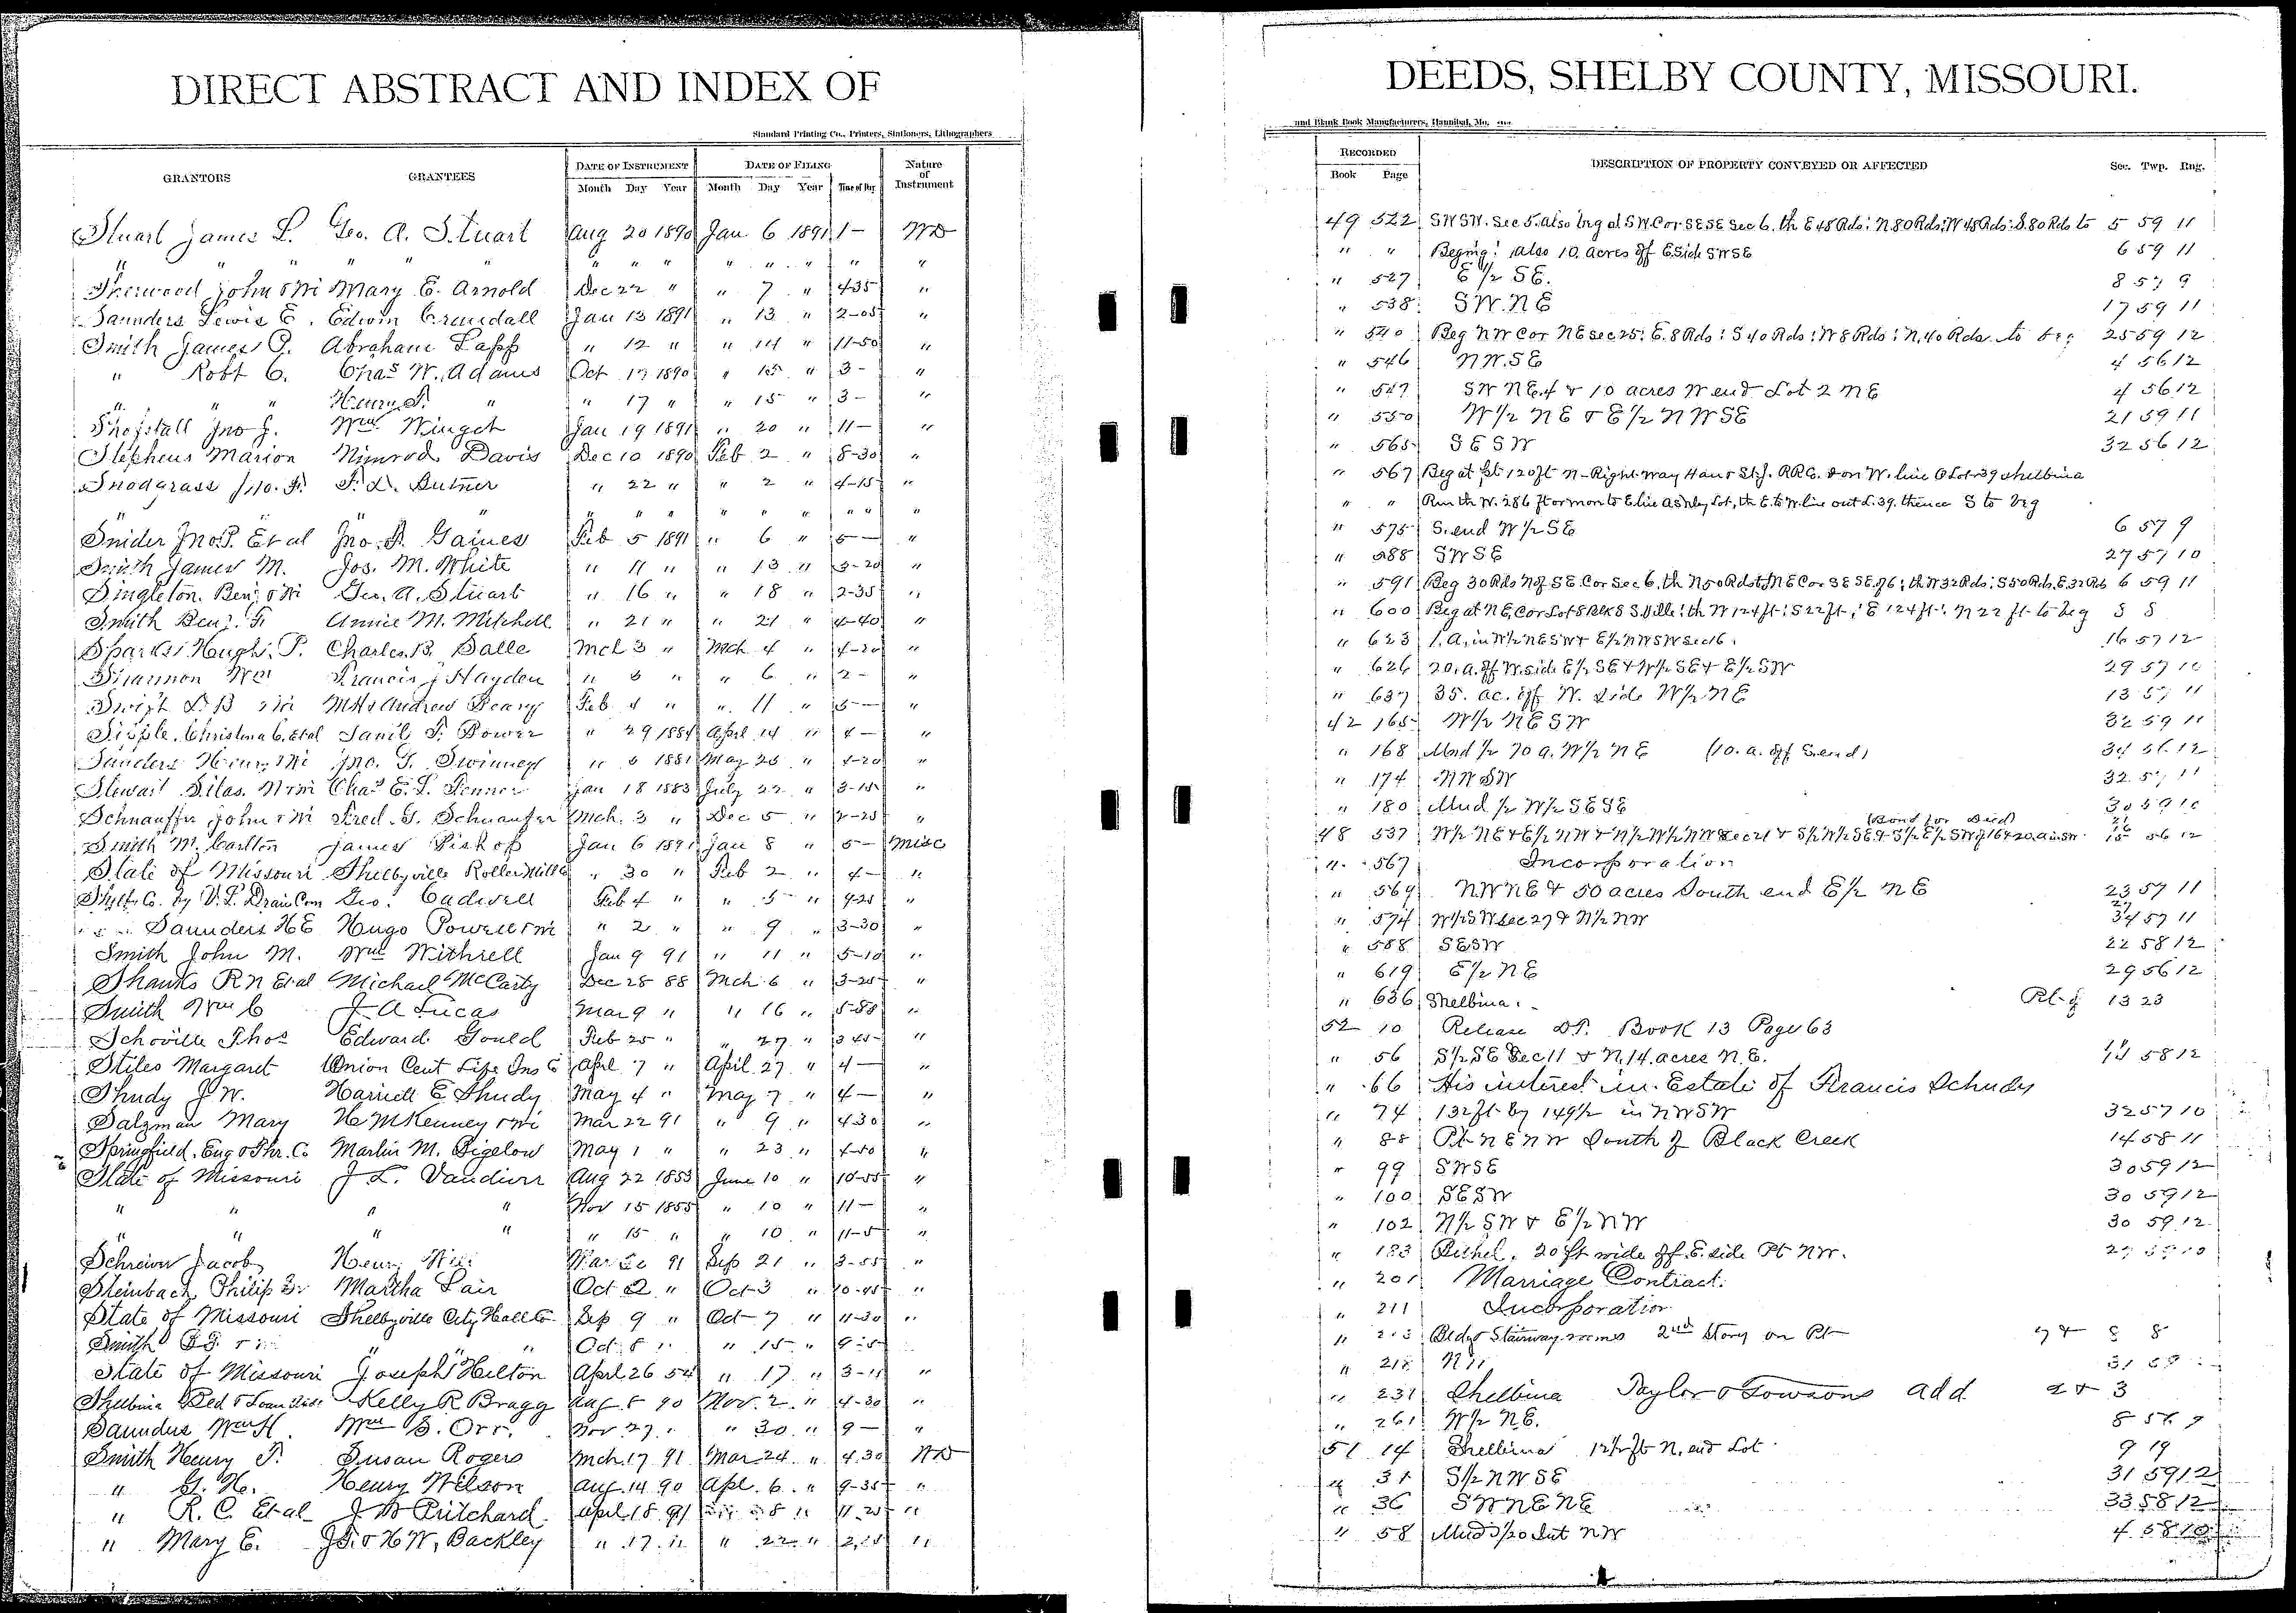 DIRECT ABSTRACT AND INDEX OF
Standard Printing Co., Printers, Stationers, Lithographers
GRANTORS GRANTEES DATE OF INSTRUMENT DATE OF FILING Nature of Instrument
Month Day Year Month Day Year Time of Day
Stuart James L. Geo. A. Stuart Aug 20 1890 Jan 6 1891 1- WD
" " " " " " " " " "
Sherwood John & Wi Mary E. Arnold Dec 22 " " 7 " 4-35 "
Saunders Lewis E. Edwin Crandall Jan 13 1891 " 13 " 2-05 "
Smith James P. Abraham Lapp " 12 " " 14 " 11-50 "
" Robt C. Chas W. Adams Oct 17 1890 " 15 " 3- "
" " " Henry S. " " 17 " " 15 " 3- "
Shofstall Jno J. Wm Winget Jan 19 1891 " 20 " 11- "
Stephens Marion Nimrod Davis Dec 10 1890 Feb 2 " 8-30 "
Snodgrass Jno. F. F. L. Dutner " 22 " " 2 " 4-15 "
" " " " " " " " " "
Snider Jno P. Et al Jno. S. Gaines Feb 5 1891 " 6 " 5- "
Smith James M. Jos. M. White " 11 " " 13 " 3-20 "
Singleton Benj & Wi Geo. A. Stuart " 16 " " 18 " 2-35 "
Smith Benj. F. Annie M. Mitchell " 21 " " 21 " 4-40 "
Sparks Hugh P. Charles B. Salle Mch 3 " Mch 4 " 4-20 "
Shannon Wm Francis J Hayden " 6 " " 6 " 2- "
Andrew Feb 4 " " 11 " 5- "
Christina C. Et al Saml F. Power " 29 1884 April 14 " 4- "
Sanders Henry & Wi Jno. G. Swinney " 6 1881 May 25 " 4-20 "
Stewart Silas N & Wi Chas E. L. Fenner Jan 18 1883 July 22 " 3-15 "
Schnauffer John & Wi Fred. G. Schnaufer Mch. 3 " Dec 5 " 2-25 "
Smith M. Carlton James Bishop Jan 6 1891 Jan 8 " 5- Misc
State of Missouri Shelbyville Roller Mills " 30 " Feb 2 " 4- "
Shelby Co. by V. L. Drain Com Geo. Cadwell Feb 4 " " 5 " 9-25 "
Saunders H E Hugo Powell & Wi " 2 " " 9 " 3-30 "
Smith John M. Wm Withrell Jan 9 91 " 11 " 5-10 "
Shanks R N Et al Michael McCarty Dec 28 88 Mch 6 " 3-25 "
Smith Wm C J. A Lucas Mar 9 " " 16 " 5-50 "
Schoville Thos Edward Gould Feb 25 " " 27 " 3 45 "
Stiles Margaret Union Cent Life Ins Co Apl 7 " April 27 " 4- "
Shudy J W. Harriett E Shudy May 4 " May 7 " 4- "
Salzman Mary H McKenney & Wi Mar 22 91 " 9 " 4 30 "
Springfield Eng & Thr. Co Martin M. Bigelow May 1 " " 23 " 4-50 "
State of Missouri J L. Vandiver Aug 22 1853 June 10 " 10-55 "
" " " " Nov 15 1855 " 10 " 11- "
" " " " " 15 " " 10 " 11-5 "
Schreiver Jacob Henry Mar 20 91 Sep 21 " 3-55 "
Steinbach Philip Sr Martha Lair Oct 2 " Oct 3 " 10-45 "
State of Missouri Shelbyville City Hall Co Sep 9 " Oct 7 " 11-30 "
Smith " " Oct 8 " " 15 " 9-5
State of Missouri Joseph Hilton April 26 54 " 17 " 3- "
Shelbina Bld & Loan Kelly R Bragg Aug 8 90 Nov. 2 " 4-30 "
Saunders Wm H. Wm S. Orr. Nov 27 " " 30 " 9- "
Smith Henry S. Susan Rogers Mch 17 91 Mar 24 " 4.30 WD
" G. H. Henry Wilson Aug. 14 90 Apl. 6 " 9-35 "
" R. C. Et al J W Pritchard April 18 91 " 11-25 "
" Mary E. J T. & H W, Backley " 17 " " 22 " "
DEEDS, SHELBY COUNTY, MISSOURI.
and Blank Book Manufacturers, Hannibal, Mo.
RECORDED DESCRIPTION OF PROPERTY CONVEYED OR AFFECTED Sec. Twp. Rng.
Book Page
49 522 SWSW. Sec 5. also beg at SW Cor SESE Sec 6. th E 48 Rds: N 80 Rds: W 48 Rds: S. 80 Rds to 5 59 11
" " Begin'g: also 10 acres off E Side SWSE 6 59 11
" 527 E 1/2 SE. 8 57 9
" 538 SW.NE 17 59 11
" 540 Beg NW Cor NE sec 25: E. 8 Rds: S 40 Rds: W 8 Rds: N. 40 Rds to beg 25 59 12
" 546 NW.SE 4 56 12
" 547 SW NE.4 & 10 acres W end Lot 2 NE 4 56 12
" 550 W 1/2 NE & E 1/2 NWSE 21 59 11
" 565 SESW 32 56 12
" 567 Beg at pt 120 ft N-Right Way Han & St J. RRC. & on W. line O Lot 39 Shelbina
" " Run th W. 286 ft or mor to E line Ashley Lot, th E. to W line out L. 39. thence S to beg
" 575 S. end W 1/2 SE 6 57 9
" 588 SWSE 27 57 10
" 591 Beg 30 Rds N of S E Cor Sec 6. th N 50 Rds to NE Cor SESE of 6: th W 32 Rds: S 50 Rds. E 32 Rds 6 59 11
" 600 Beg at NE Cor Lot 8 Blk 8 S.Ville: th W 124 ft: S 22 ft: E 124 ft: N 22 ft to beg 8 8
" 623 1. A, in W 1/2 NESW & E 1/2 NWSW Sec 16. 16 57 12
" 626 20. A. off W. side E 1/2 SE & W 1/2 SE & E 1/2 SW 29 57 10
" 637 35. ac. off W. Side W 1/2 NE 13 57 11
42 165 W 1/2 NESW 32 59 11
" 168 Und 1/2 70 a. W 1/2 NE (10. a. off S. end) 34 56 12
" 174 NWSW 32 57 11
" 180 Und 1/2 W 1/2 SESE 30 59 10
(Bond for Deed) 21
48 537 W 1/2 NE & E 1/2 NW & N 1/2 W 1/2 NW Sec 21 & S 1/2 W 1/2 SE & S 1/2 E 1/2 SW of 16 & 20. a in SW 16 56 12
" 567 Incorporation
" 569 NWNE & 50 acres South end E 1/2 NE 23 57 11
" 574 W 1/2 SW Sec 27 & N 1/2 NW 27 34 57 11
" 588 SESW 22 58 12
" 619 E 1/2 NE 29 56 12
" 636 Shelbina. Pt of 13 23
52 10 Release DT. Book 13 Page 63
" 56 S 1/2 SE Sec 11 & N. 14. acres N. E. 58 12
" 66 His interest in Estate of Francis Schudy
" 74 132 ft by 149 1/2 in NWSW 32 57 10
" 88 Pt NENW South of Black Creek 14 58 11
" 99 SWSE 30 59 12
" 100 SESW 30 59 12
" 102 N 1/2 SW & E 1/2 NW 30 59 12
" 183 Bethel. 20 ft wide off E. side Pt NW.
" 201 Marriage Contract.
" 211 Incorporation
" 213 Bldg & Stairway 2nd Story on Pt 7 & 8 8
" 218
" 231 Shelbina Taylor & Towsons add 2 & 3
" 261 W 1/2 NE. 8 56 9
51 14 Shellbina 12 1/2 ft N. end Lot 9 19
" 31 S 1/2 NWSE 31 59 12
" 36 SWNENE 33 58 12
" 58 Und 3/20 Int NW 4 58 10